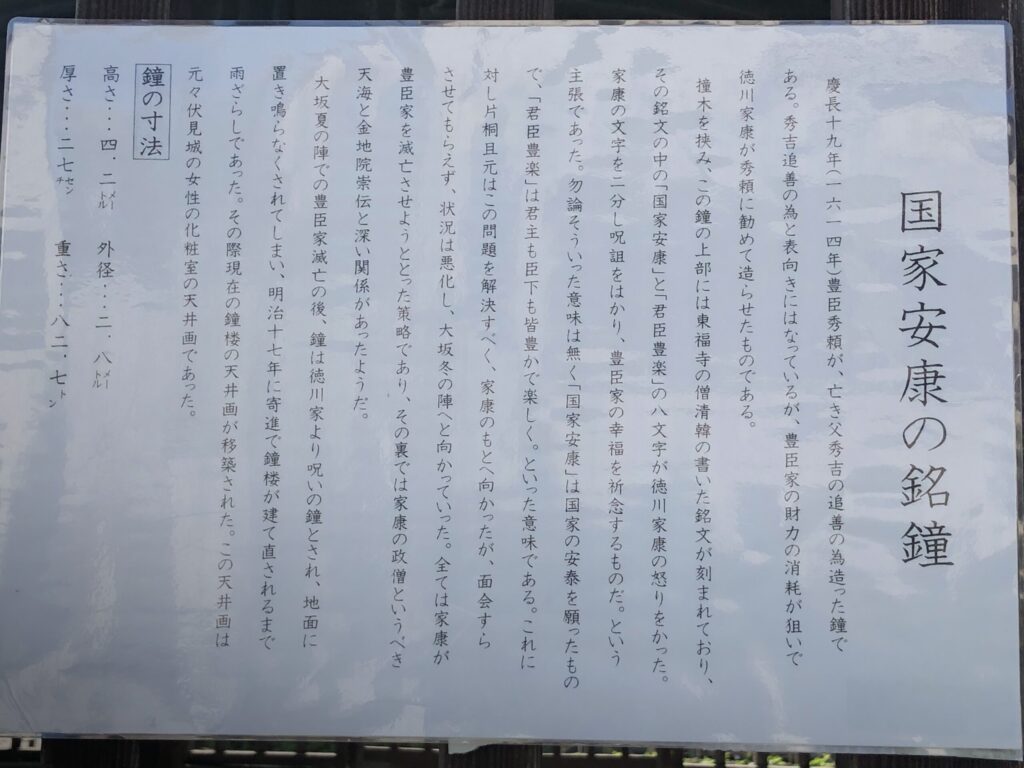 国家安康の銘鐘
慶長十九年(一六一四年)豊臣秀頼が、亡き父秀吉の追善の為造った鐘で
ある。秀吉追善の為と表向きにはなっているが、豊臣家の財力の消耗が狙いで
徳川家康が秀頼に勧めて造らせたものである。
撞木を挟み、この鐘の上部には東福寺の僧清韓の書いた銘文が刻まれており、
その銘文の中の「国家安康」と「君臣豊楽」の八文字が徳川家康の怒りをかった。
家康の文字を二分し呪詛をはかり、豊臣家の幸福を祈念するものだ。という
主張であった。勿論そういった意味は無く「国家安康」は国家の安泰を願ったもの
で、「君臣豊楽」は君主も臣下も皆豊かで楽しく。といった意味である。これに
対し片桐且元はこの問題を解決すべく、家康のもとへ向かったが、面会すら
させてもらえず、状況は悪化し、大坂冬の陣へと向かっていった。全ては家康が
豊臣家を滅亡させようととった策略であり、その裏では家康の政僧というべき
天海と金地院崇伝と深い関係があったようだ。
大坂夏の陣での豊臣家滅亡の後、鐘は徳川家より呪いの鐘とされ、地面に
置き鳴らなくされてしまい、明治十七年に寄進で鐘楼が建て直されるまで
雨ざらしであった。その際現在の鐘楼の天井画が移築された。この天井画は
元々伏見城の女性の化粧室の天井画であった。
鐘の寸法
高さ・・・四．二メートル 外径・・・二．八メートル
厚さ・・・二七センチ 重さ・・・八二．七トン